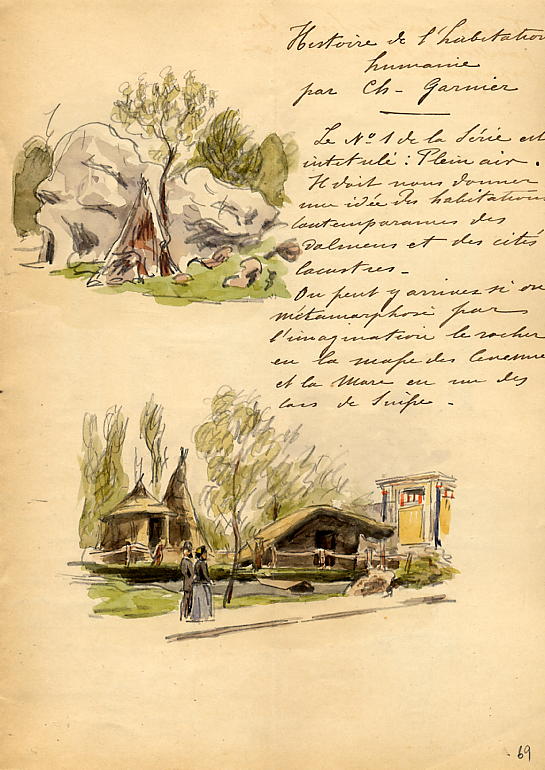 Histoire de l'habitation
humaine
par Ch- Garnier
Le No 1 de la Série est
intitulé : Plein air.
Il doit nous donner
une idée des habitations
contemporaines des
dolmens et des cités
lacustres -
On peut y arriver si on
métamorphose par
l'imagination le rocher
en la masse des Cevennes
et la Mare en un des
lacs de Suisse -
69